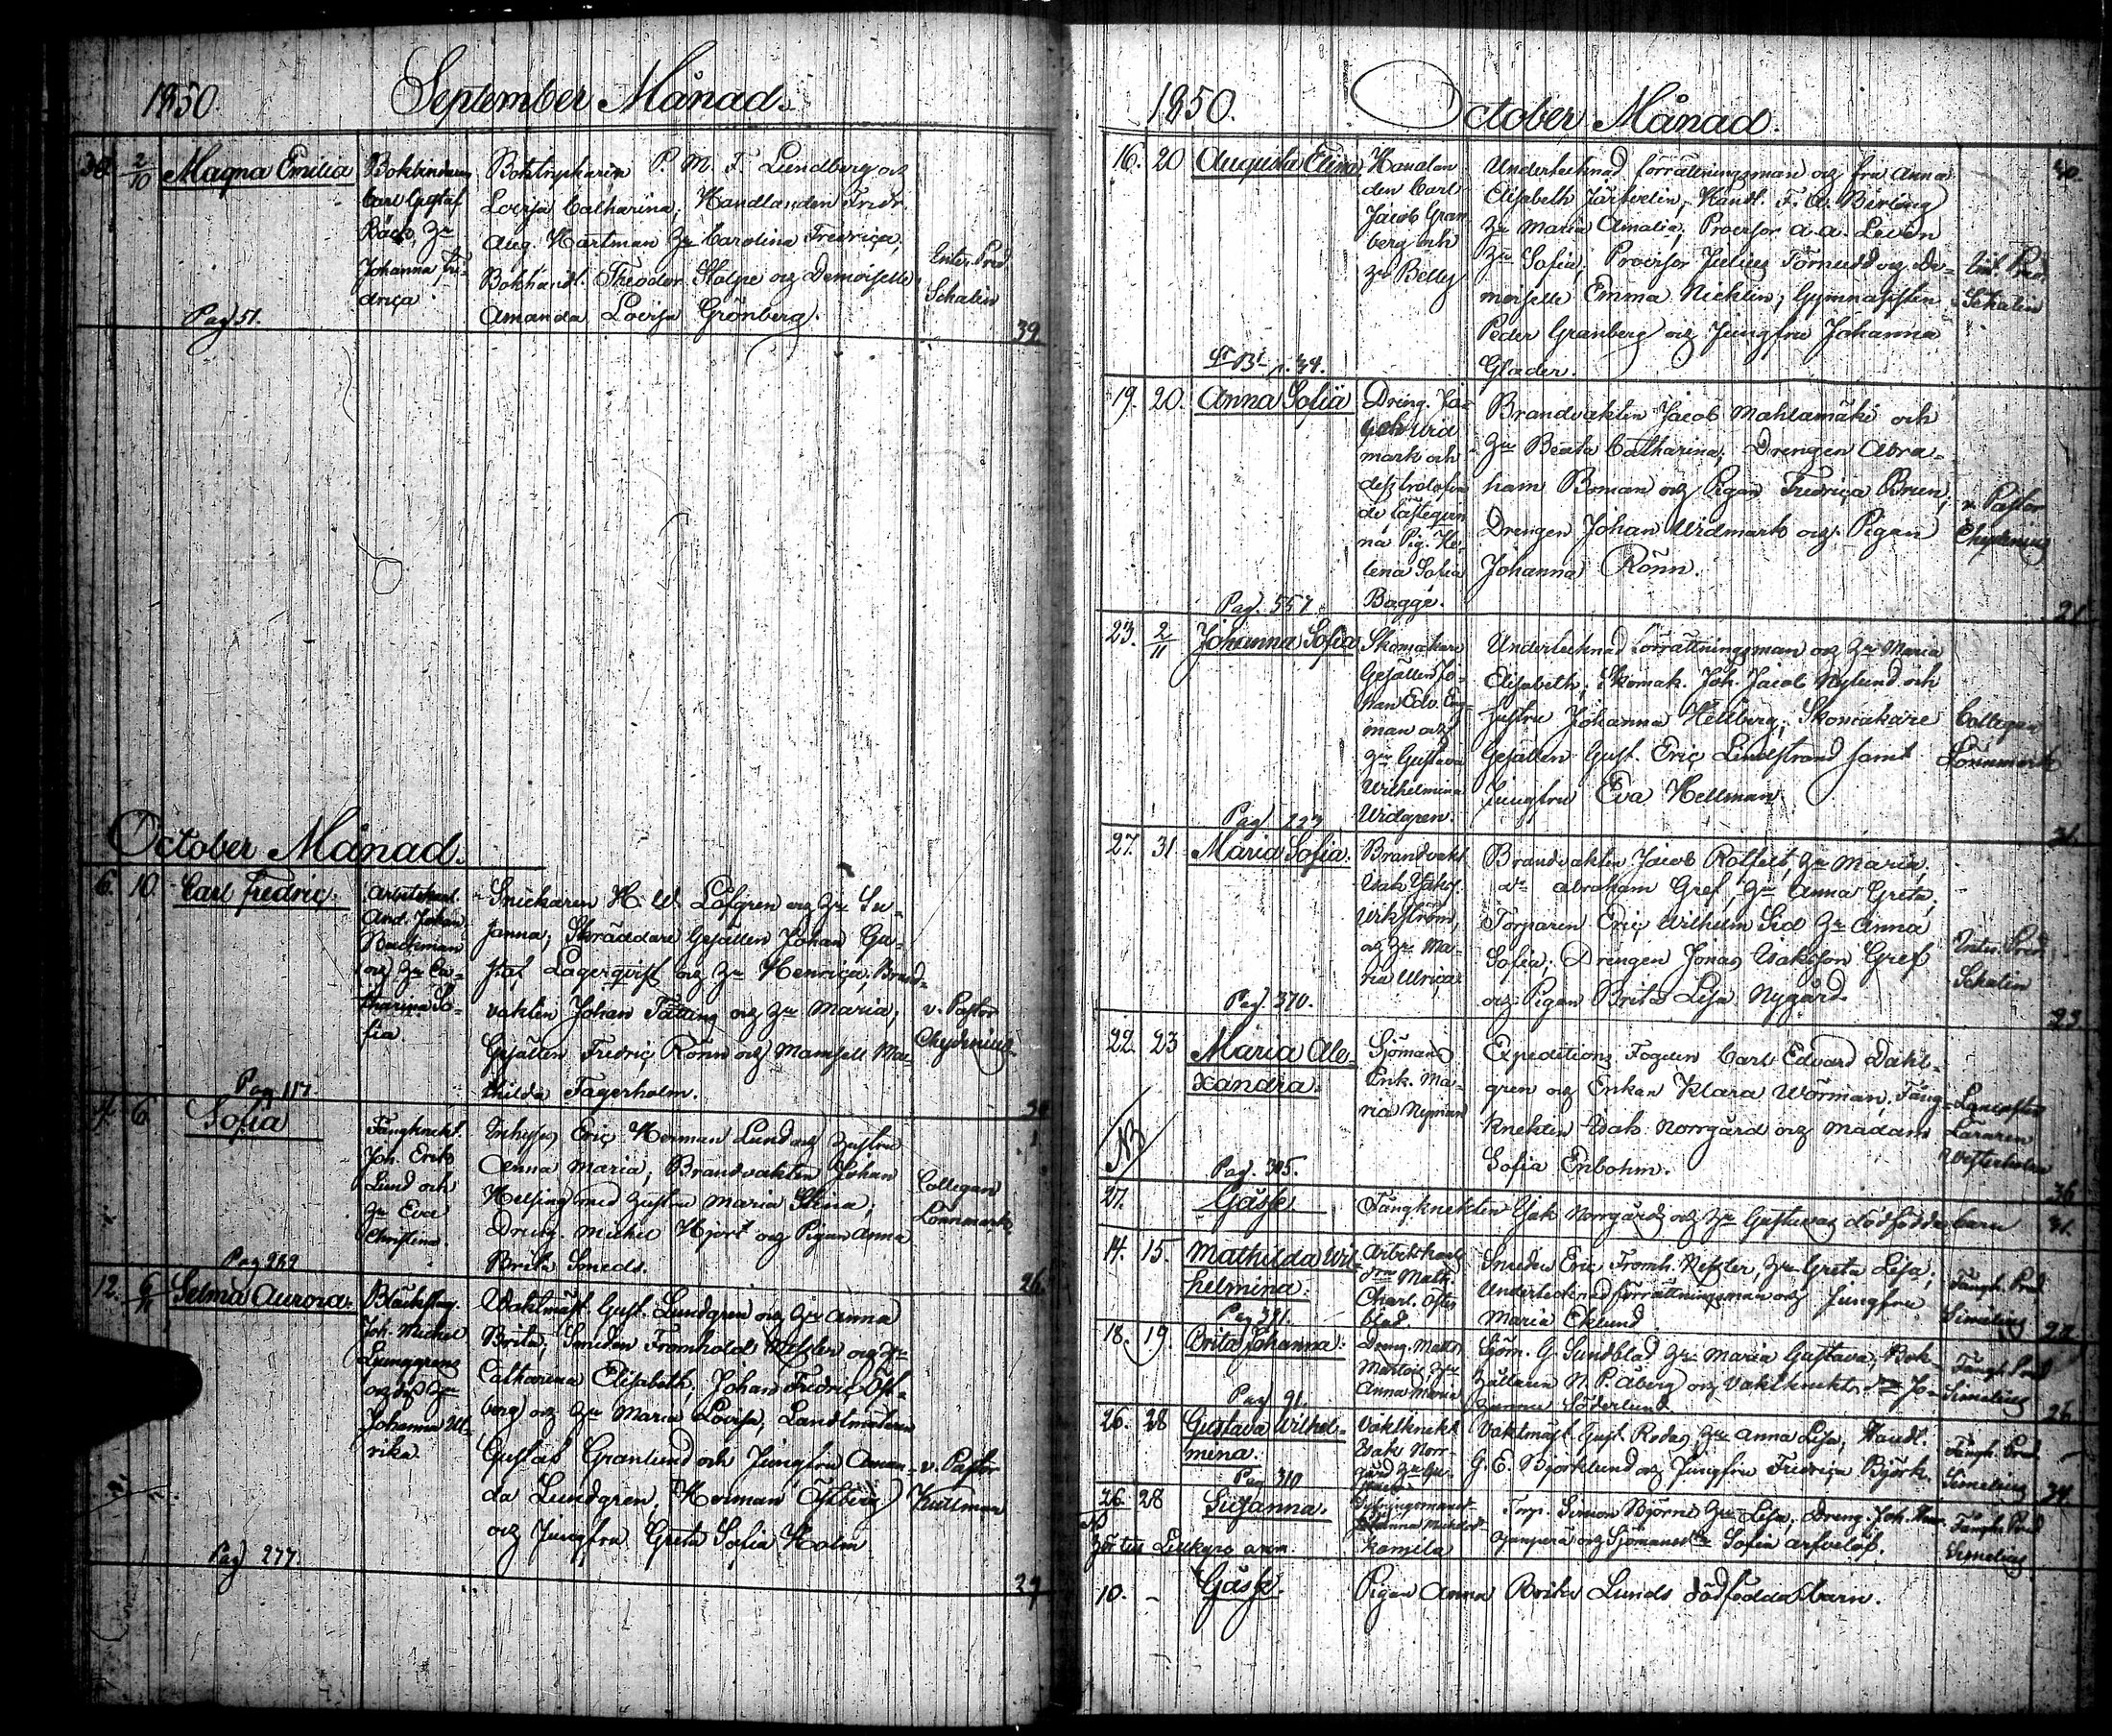 1850 September Månad.
30. 2/10 Magna Emilia
Pag. 51.
Bokbindaren
Carl Gustaf
Bäck, Hu
Johanna Fre-
drica
Boktryckaren P. M. F. Lundberg och
Lovisa Catharina; Handlanden Fredr.
Aug. Hartman Hu Carolina Fredrica;
Bokhandl. Theodor Stolpe och Demoiselle
Amanda Lovisa Grönberg.
Inter. Pred.
Schalin
39.
October Månad.
6. 10. Carl Fredric.
Pag. 117.
Arbetskarl.
And. Johan
Backman
och Hu Ca-
tharina So-
fia
Snickaren H. W. Löfgren och Hu Su-
sanna; Skräddare Gesällen Johan Gu-
staf Lagerqvist och Hu Henrica; Brand-
vakten Johan Tätting och Hu Maria;
Gesällen Fredric Rönn och Mamsell Ma-
thilda Fagerholm.
v. Pastor
Chydenius
6. Sofia
Pag 252
Fångknekt.
Joh. Erik
Lund och
Hu Eva
Christina.
Inhyses Eric Herman Lund och hustru
Anna Maria; Brandvakten Johan
Helsing med hustru Maria Stina;
Dreng. Michel Hjort och Pigan Anna
Brita Smeds.
Collegan
Lönnmark
26.
12. 6/11 Selma Aurora.
Pag. 277.
Joh. Michel
Ljunggren
och dess Hu
Johanna Ul-
rika
Vaktmäst. Gust. Lundgren och Hu Anna
Brita; Smeden Fromhold Kessler och Hu
Catharina Elisabeth; Johan Fredric Öst-
berg och Hu Maria Lovisa; Landtmätaren
Gustaf Granlund och Jungfru Aman-
da Lundgren; Herman Östberg
och Jungfru Greta Sofia Holm
v. Pastor
29
1850. October Månad.
16. 20 Augusta Elina
p. 34.
Handlan
den Carl
Jacob Gran
berg och
Hu Betty
Undertecknad förrättningsman och fru Anna
Elisabeth Järfvelin; Handl. F. A. Birling
Hu Maria Amalia; Provisor A. A. Levón
Hu Sofia; Provisor Julius Törnudd och De-
moiselle Emma Nicklin; Gymnasisten
Peder Granberg och Jungfru Johanna
Glader.
Int. Pred.
Schalin
40.
19. 20. Anna Sofia
Pag. 557.
Dreng. Ja-
cob Wid
mark och
dess trolofva
de Fästeqvin
na Pig. He-
lena Sofia
Bagge.
Brandvakten Jacob Mahlamäki och
Hu Beata Catharina; Drengen Abra-
ham Boman och Pigan Fredrica Brun;
Drengen Johan Widmark och Pigan
Johanna Rönn.
v. Pastor
Chydenius
21
23. 2/11 Johanna Sofia
Pag. 223
Skomakare
Gesällen Jo-
han Edv. Eng-
man och
Hu Gustava
Wilhelmina
Widgren.
Undertecknad förrättningsman och Hu Maria
Elisabeth; Skomak. Joh. Jacob Nylund och
hustru Johanna Hellberg; Skomakare
Gesällen Gust. Eric Lindstrand samt
Jungfru Eva Hellman.
Collegan
Lönnmark
27. 31. Maria Sofia.
Pag. 370.
Brandvakt.
Isak Jakob
Wikström,
och Hu Ma-
ria Ulrica
Brandvakten Jacob Rotfelt, Hu Maria,
d:o Abraham Gref, Hu Anna Greta,
Torparen Eric Wilhelm Sid Hu Anna
Sofia; Drengen Jonas Isaksson Gref
och Pigan Brita Lisa Nygård.
Inter. Pred.
Schalin
23.
22. 23 Maria Ale-
xandra.
NB
Pag. 305.
Sjömans
Enk. Ma-
ria Nyman
Expeditions Fogden Carl Edvard Dahl-
gren och Enkan Klara Wörman, Fång-
knekten Isak Norrgård och Madam
Sofia Enbohm.
Läraren
Westerholm
36
27. Gåsse Fångknekten Isak Norrgårds och Hu Gustavas dödfödda barn 31.
14. 15. Mathilda Wil-
helmina.
Pag 391.
Smeden Eric Fromh. Kessler, Hu Greta Lisa;
Undertecknad förrättningsman och Jungfru
Maria Eklund
Fångh. Pred.
Simelius
18. 19. Brita Johanna.
Pag. 91.
Dreng. Matts
Anna Maria
Sjöm. G Sundblad Hu Maria Gustava; Bok-
hållaren N. P. Åberg och Vaktknekts
Söderlund
Fångh. Pred
Simelius
26
26. 28 Gustava Wilhel-
mina.
Pag 310
Vaktknekt
Isak Norr-
gård Hu Gu-
stava
Vaktmäst. Gust. Rodas Hu Anna Lisa; Handl.
G. E. Björklund och Jungfru Fredrica Björk.
Fångh. Pred.
Simelius
34
26. 28 Susanna.
Torp. Simon Björni Hu Lisa; Dreng. Joh.
och Sjömans Sofia
Fångh. Pred
Simelius
10. - Gåsse. Pigan Anna Brita Lunds dödfödda barn.